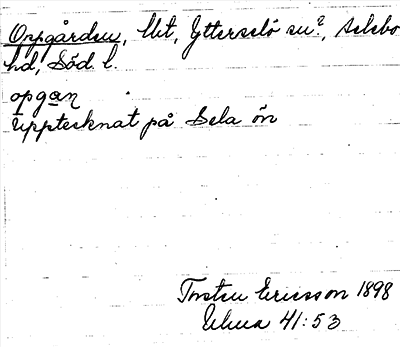 Oppgården, lht, Ytterselö sn?, Selebo
hd, Söd. l.
opgan
Upptecknat på Sela ön
Torsten Ericsson 1898
Ulma 41:53